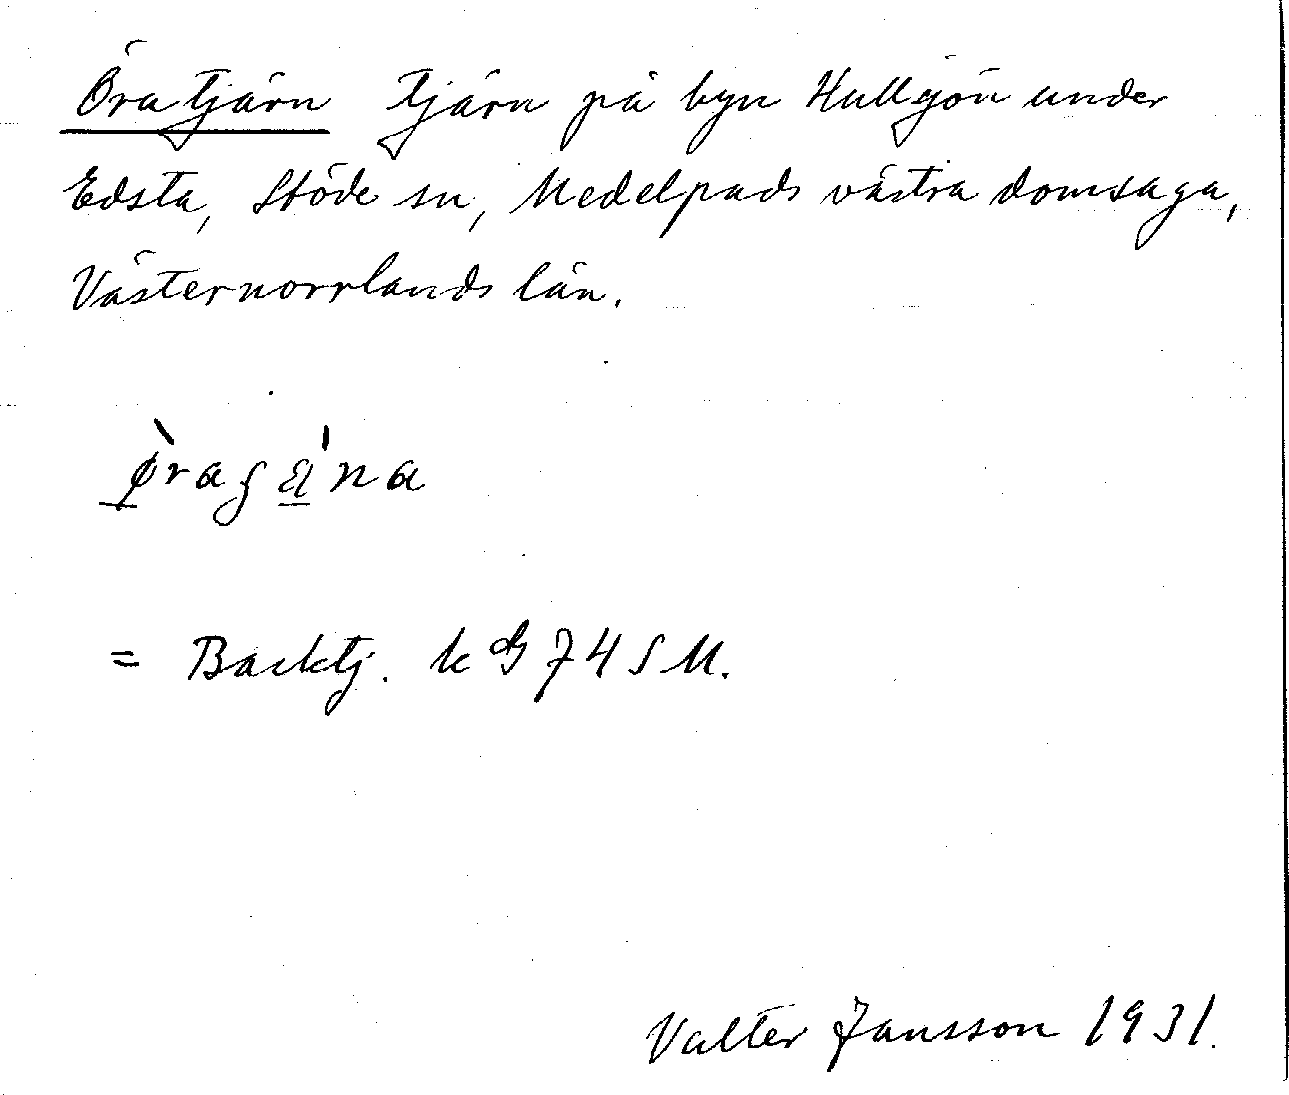 Öratjärn Tjärn på byn Hullsjön under
Edsta, Stöde sn, Medelpads västra domsaga,
Västernorrlands län.
= Backtj. k G 74 S M.
Valter Jansson 1931.